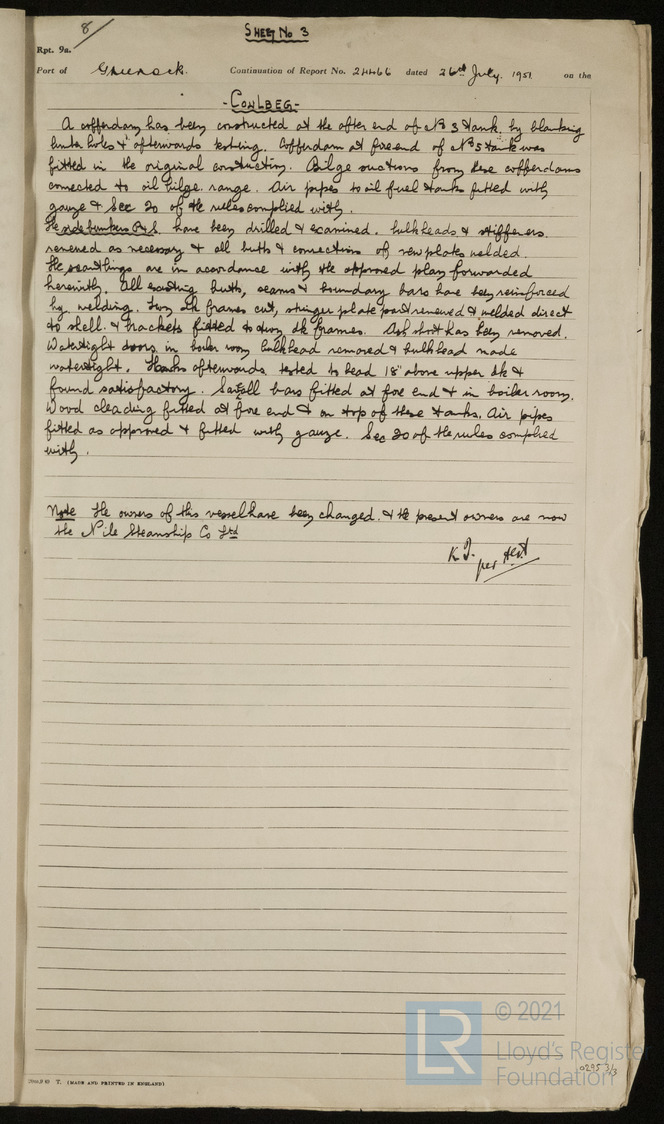 8
SHEET No 3
Rpt. 9a.
Port of Greenock. Continuation of Report No. 24466 dated 26th July, 1951 on the
- CONLBEG -
A cofferdam has been constructed at the after end of No 3 tank by blanking
holes & afterwards testing. Cofferdam at fore end of No 5 tank was
fitted in the original construction. Bilge suctions from these cofferdams
connected to oil bilge range. Air pipes to oil fuel tanks fitted with
gauze & Sec 20 of the rules complied with.
The side bunkers P & S. have been drilled & examined. bulkheads & stiffeners
renewed as necessary & all butts & connections of new plates welded.
The scantlings are in accordance with the approved plan forwarded
herewith. All existing butts, seams & boundary bars have been reinforced
by welding. Two dk frames cut, stringer plate part renewed & welded direct
to shell & brackets fitted to dk frames. Ash shoot has been removed.
Watertight doors in boiler room bulkhead removed & bulkhead made
watertight. Tanks afterwards tested to head 18" above upper dk &
found satisfactory. Savall bars fitted at fore end & in boiler room.
Wood cleading fitted at fore end & on top of these tanks. Air pipes
fitted as approved & fitted with gauze. Sec 20 of the rules complied
with.
Note The owners of this vessel have been changed. & the present owners are now
the Nile Steamship Co Ltd
K.J.
per
T. (MADE AND PRINTED IN ENGLAND)
LR
© 2021
Lloyd's Register
Foundation
0295 3/3